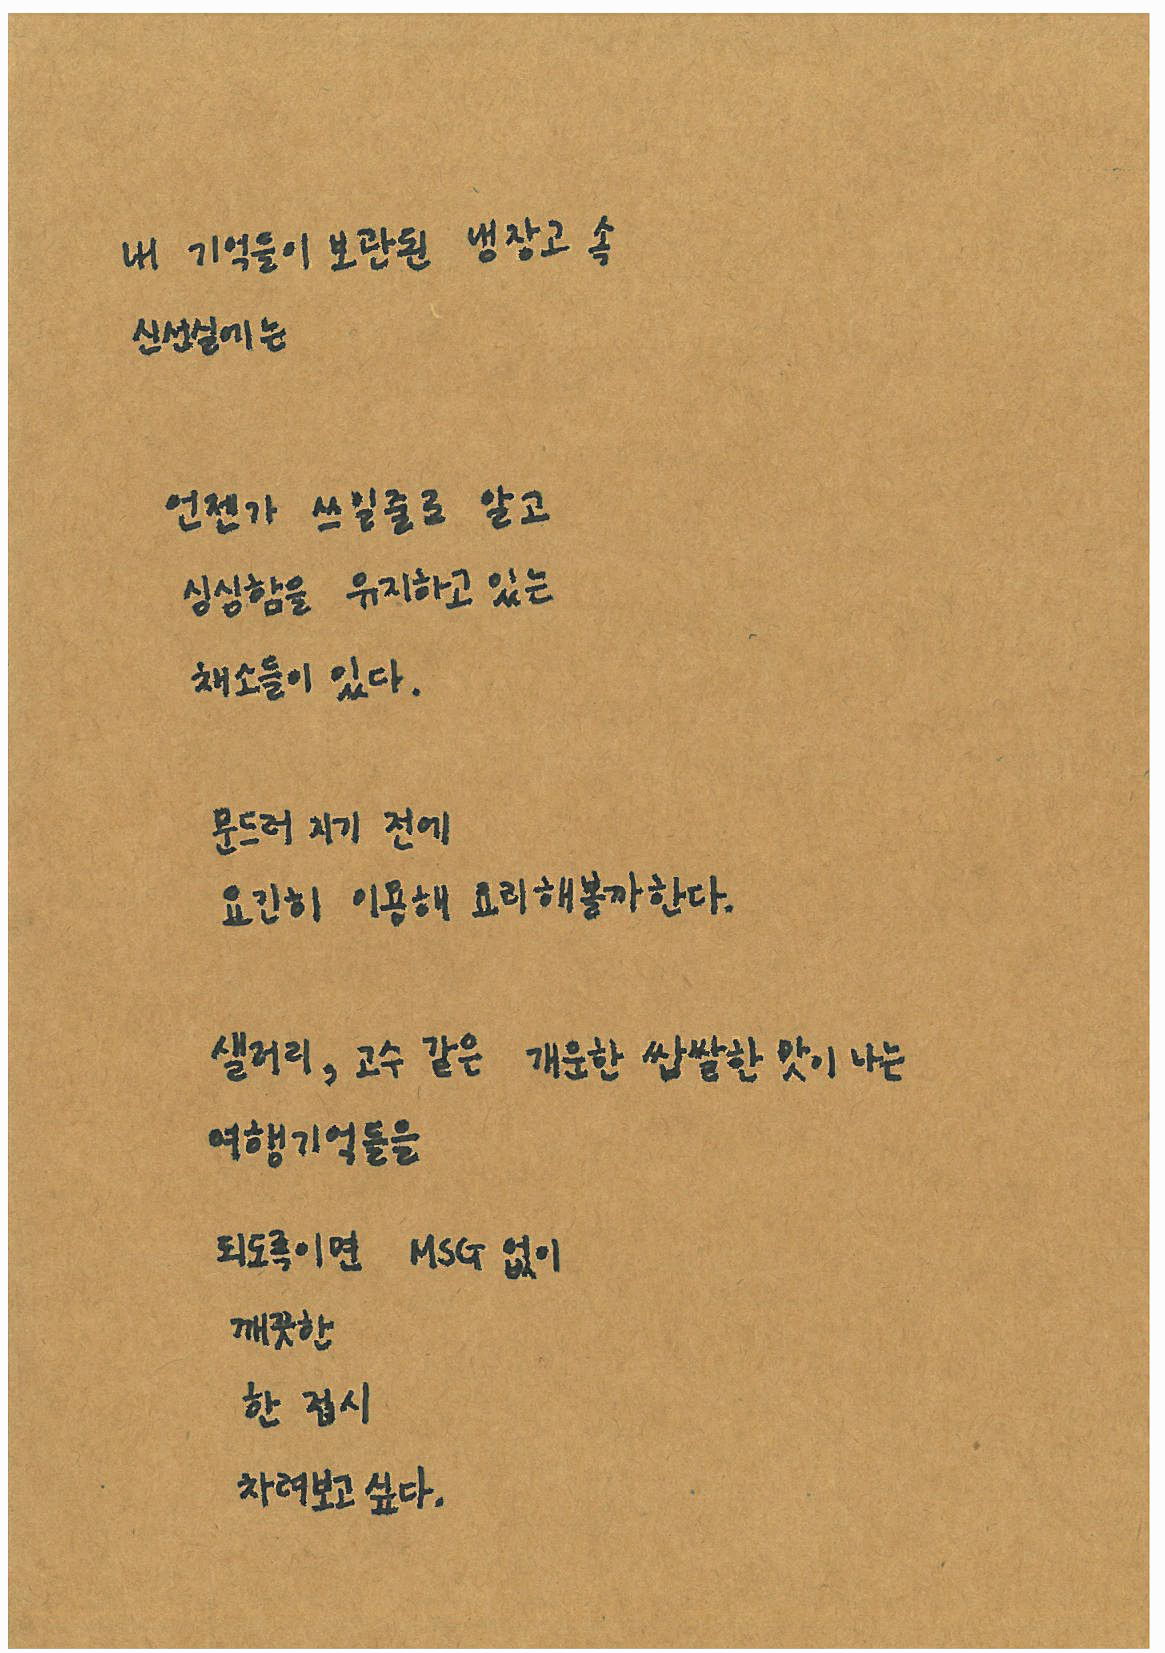 내 기억들이 보관된 냉장고 속
신선실에는
언젠가 쓰일줄로 알고
싱싱함을 유지하고 있는
채소들이 있다.
문드러 지기 전에
요긴히 이용해 요리해볼까한다.
샐러리, 고수 같은 개운한 쌉쌀한 맛이 나는
여행기억들을
되도록이면 MSG 없이
깨끗한
한 접시
차려보고 싶다.